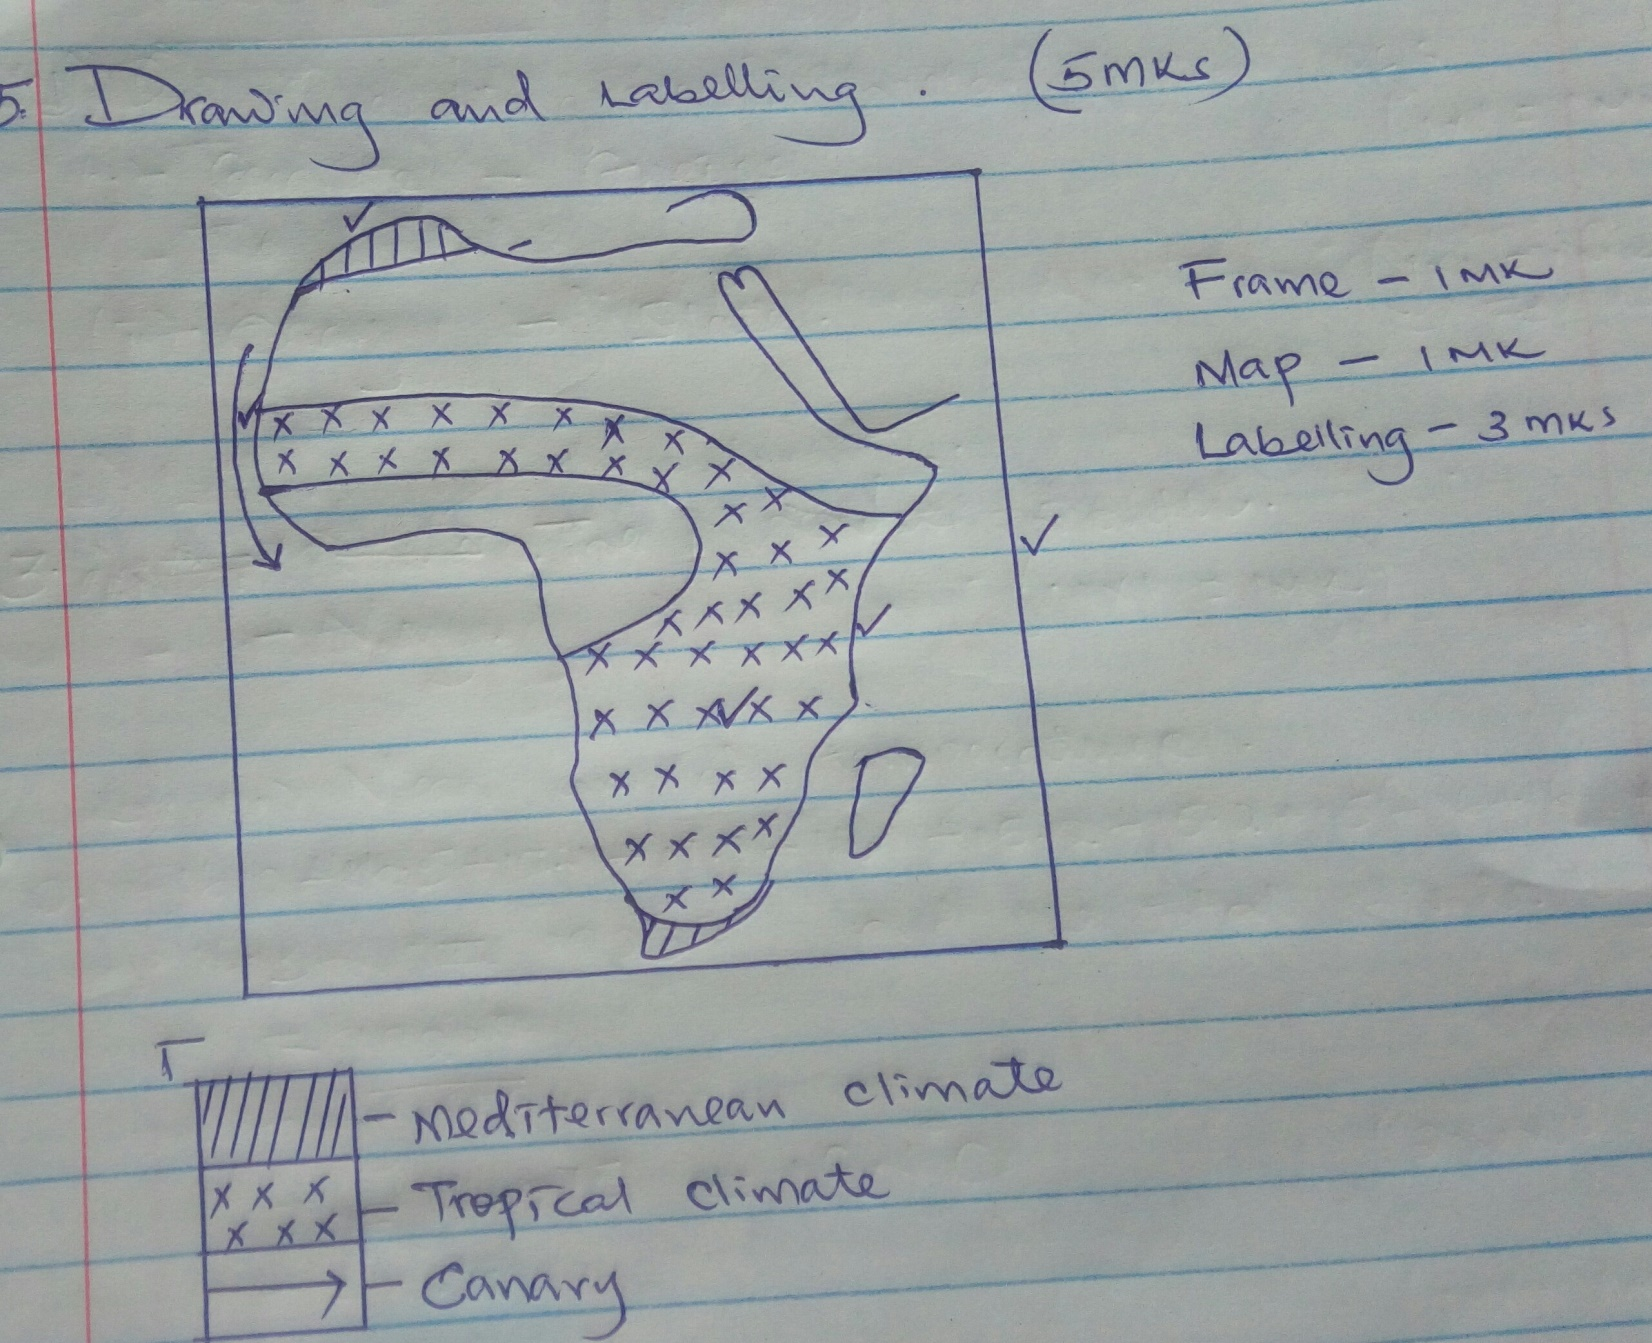 5. Drawing and Labelling. (5mks)
Frame - 1 MK
Map - 1 MK
Labelling - 3 mks
Mediterranean climate
Tropical climate
Canary